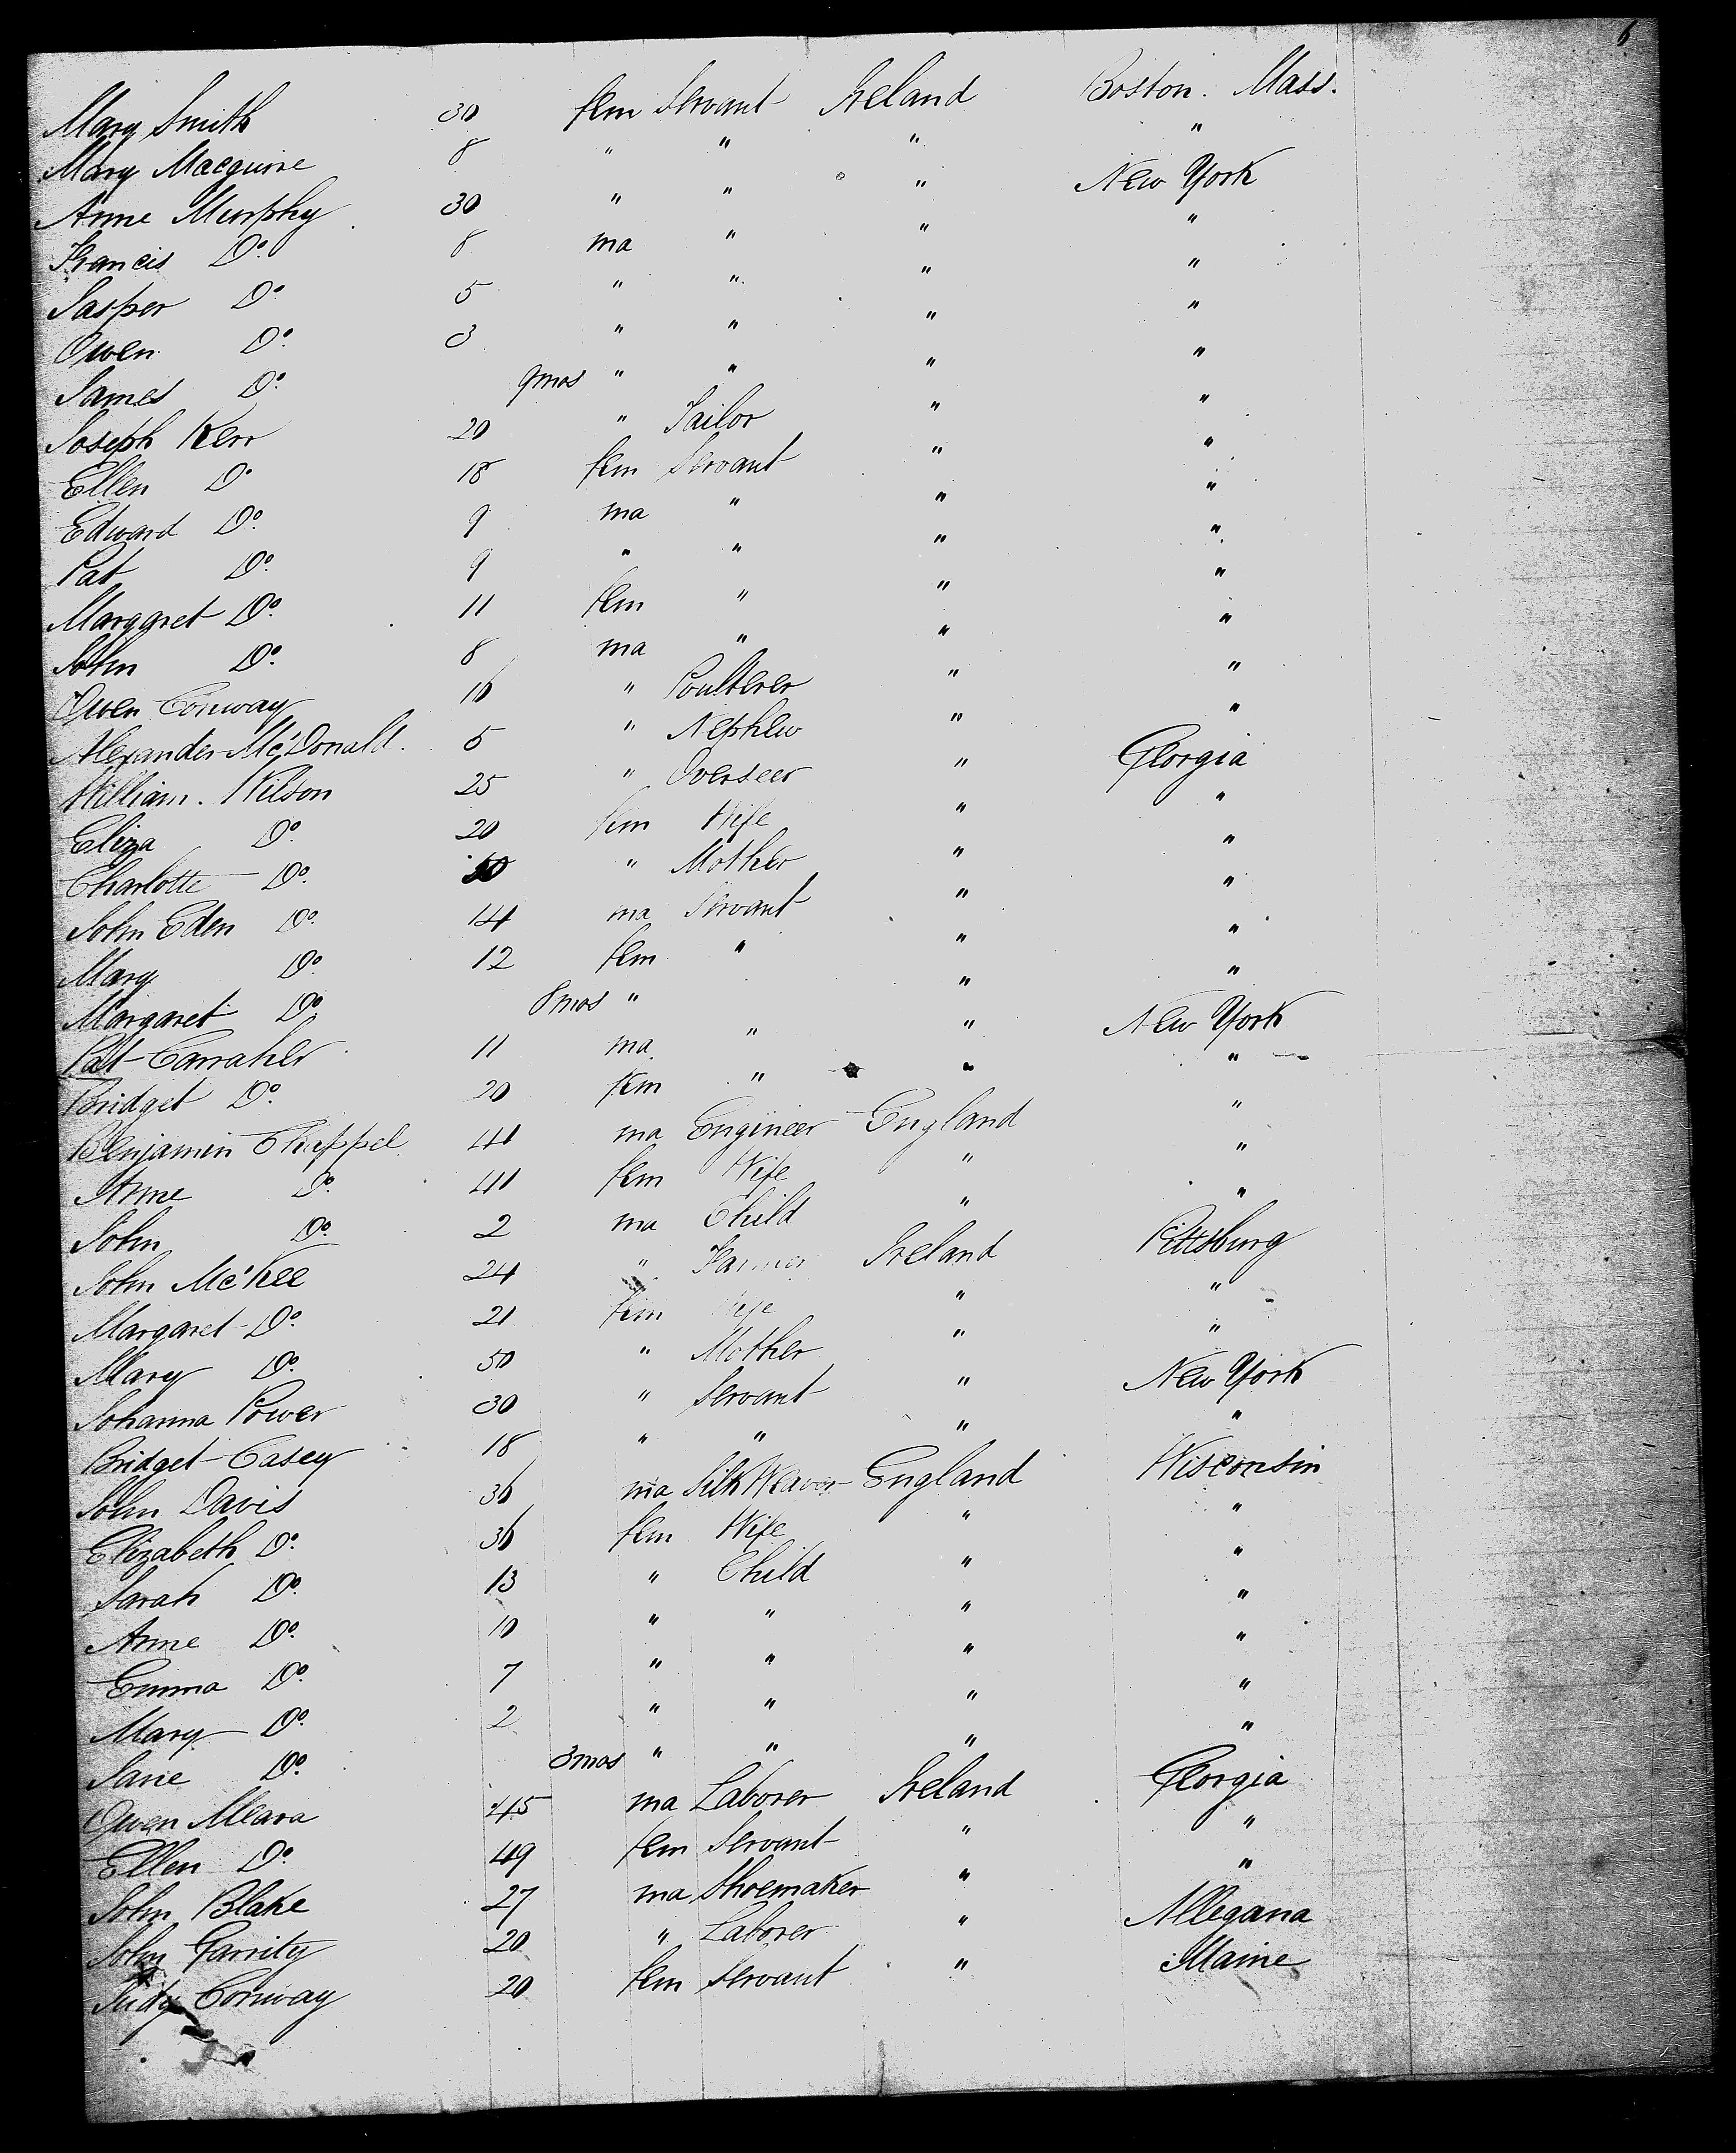 6
Mary Smith 30 fem Servant Ireland Boston. Mass.
Mary Macguire 8 " " " "
Anne Murphy 30 " " " New York
Francis Do. 8 ma " " "
Jasper Do. 5 " " " "
Owen Do. 3 " " " "
James Do. 9mos " " " "
Joseph Kerr 20 " Tailor " "
Ellen Do 18 fem Servant " "
Edward Do. 9 ma " " "
Pat Do. 9 " " " "
Marggret Do. 11 fem " " "
John Do. 8 ma " " "
Owen Conway 16 " Poulterer " "
Alexander McDonald. 5 " Nephew " "
William. Wilson 25 " Overseer " Georgia
Eliza Do. 20 fem Wife " "
Charlotte Do. " Mother " "
John Eden Do. 14 ma Servant " "
Mary Do. 12 fem " " "
Margaret Do 8mos " " "
Pat Carraher 11 ma " " New York
Bridget Do. 20 fem " " "
Benjamin Chappel 41 ma Engineer England "
Anne Do. 41 fem Wife " "
John Do. 2 ma Child " "
John McKee 24 " Farmer Ireland Pittsburg
Margaret Do. 21 fem Wife " "
Mary Do. 50 " Mother " "
Johanna Power 30 " Servant " New York
Bridget Casey 18 " " " "
John Davis 36 ma Silk Weaver England Wisconsin
Elizabeth Do. 36 fem Wife " "
Sarah Do. 13 " Child " "
Anne Do. 10 " " " "
Emma Do. 7 " " " "
Mary Do. 2 " " " "
Jane Do. 3mos " " " "
Owen Meara 45 ma Laborer Ireland Georgia
Ellen Do. 49 fem Servant " "
John Blake 27 ma Shoemaker " "
John Garrity 20 " Laborer " Allegana
Judy Conway 20 fem Servant " Maine